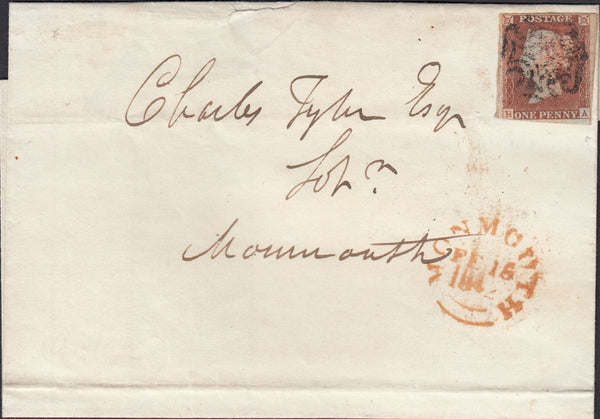 POSTAGE
ONE PENNY
A
Charles Tyler Esq
Solr.
Monmouth
MONMOUTH
FE 16